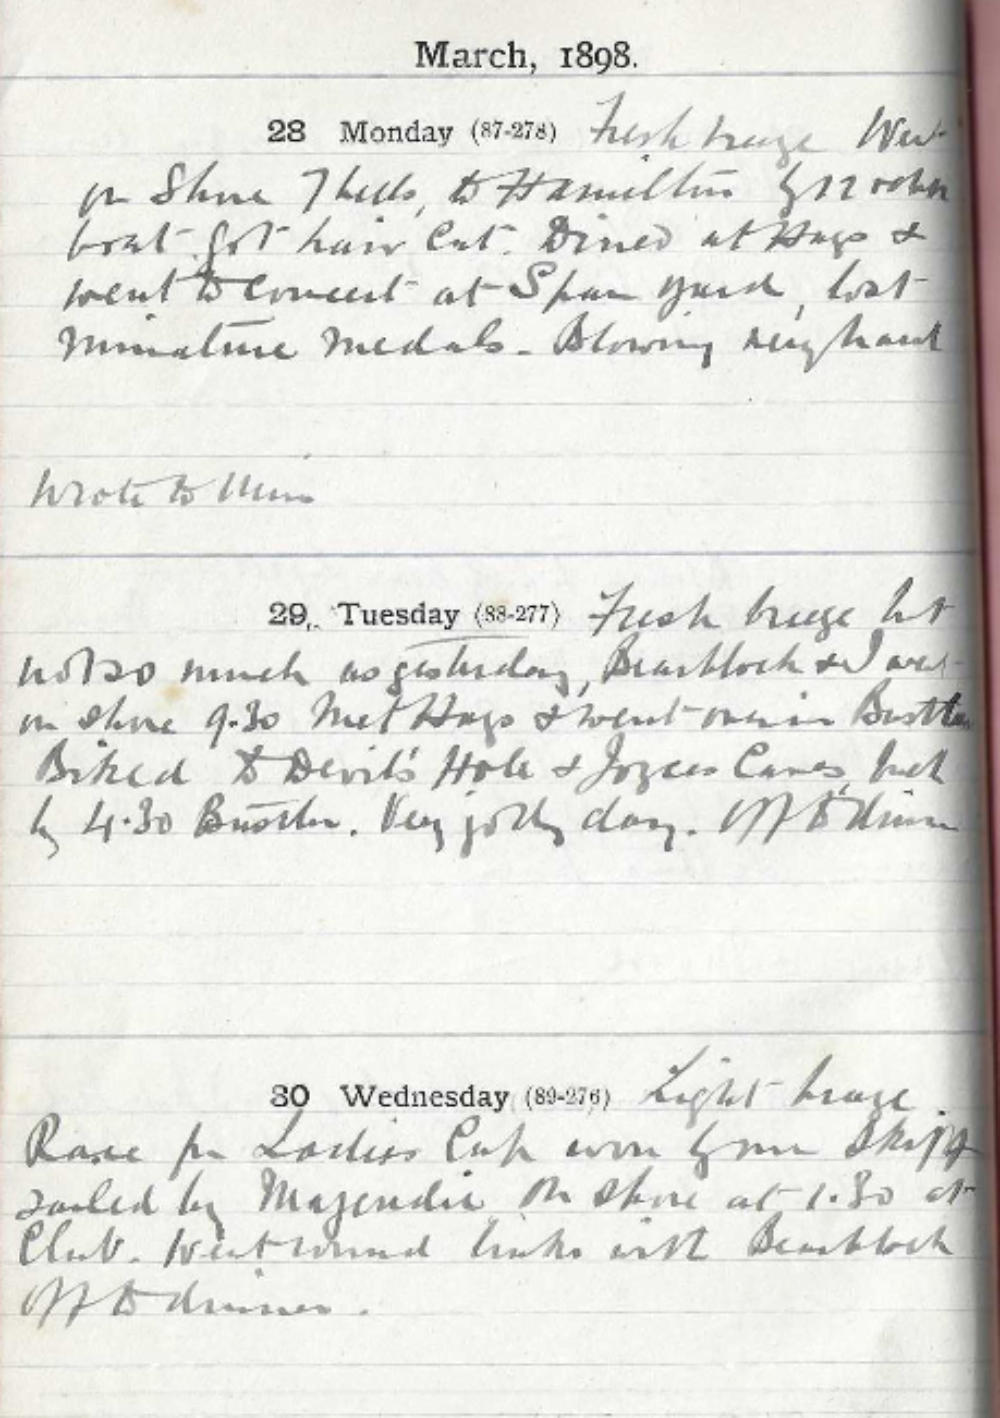 March, 1898.
28 Monday (87-278) Fresh breeze Went
on Shore 7 bells, to Hamilton by 12 oclock
boat got hair cut. Dined at Hags &
went to Concert at Spar yard, lost
miniature medals - Blowing very hard
Wrote to
29. Tuesday (88-277) Fresh breeze but
not so much as yesterday, & I went
on shore 9.30 Met Hags & went over in Bustler
Biked to Devil's Hole & Joyces Caves, back
by 4.30 Bustler. Very jolly day. Off to dinner
30 Wednesday (89-276) Light breeze.
Race for Ladies Cup won by our Skiff
sailed by Majendie On shore at 1.30 at
Club. Went round links with
Off to dinner.